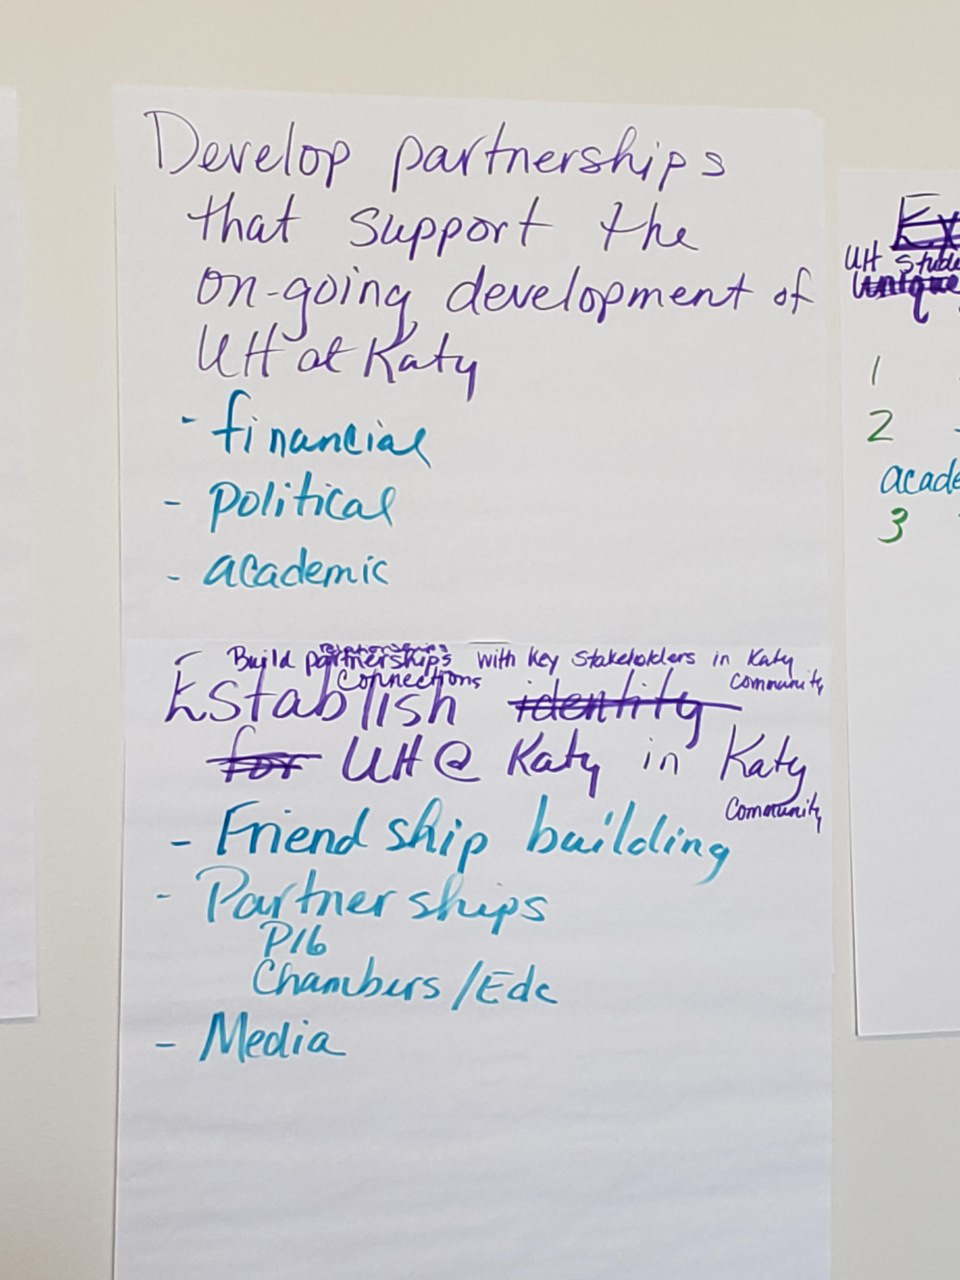 Develop partnerships
that support the
on-going development of
UH at Katy
- financial
- political
- academic
Build partnerships with key stakeholders in Katy
Connections
Community
Establish identity
for UH @ Katy in Katy
Community
- Friendship building
- Partnerships
P16
Chambers/Edc
- Media
UH
1
2
3